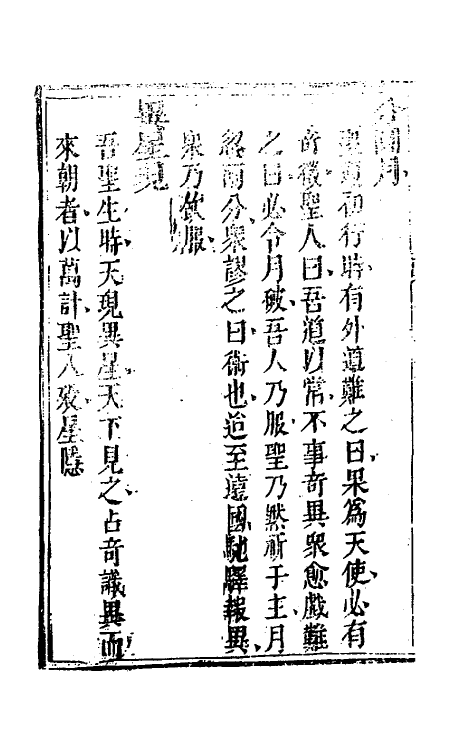 分開月
聖道初行時有外道難之曰果為天使必有
奇徵聖人曰吾道以常不事奇異衆愈戲難
之曰必令月破吾人乃服聖乃黙祈于主月
忽兩分衆謬之曰術也迨至遠國馳驛報異
衆乃欽服
異星現
吾聖生時天現異星天下見之占奇識異而
來朝者以萬計聖人歿星隱